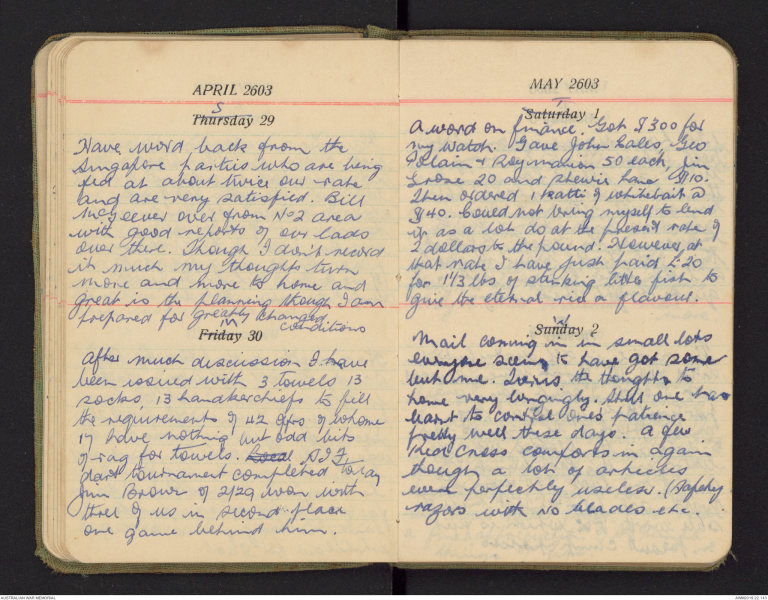 APRIL 2603
S
Thursday 29
Have word back from the
Singapore parties who are being
fed at about twice our rate
and are very satisfied. Bill
McGeever over from No 2 area
with good reports of our lads
over there. Though I don't record
it much my thoughts turn
more and more to home and
great is the planning though I am
prepared for greatly changed
conditions
Friday 30
After much discussion I have
been issued with 3 towels 13
socks 13 handkerchiefs to fill
the requirements of 42 offrs of whome
17 have nothing but odd bits
of rag for towels. Local A I F
dart tournament completed to-day
Jim Brown of 2/29 won with
three of us in second place
one game behind him.
MAY 2603
Saturday 1
A word on finance. Got $300 for
my watch. Gave John Eales, Geo
50 each, Jim
20 and $10.
Then ordered 1 katti of whitebait @
$40. Could not bring myself to lend
it as a lot do at the present rate of
2 dollars to the pound. However at
that rate I have just paid £20
for 1 1/3 lbs of stinking little fish to
give the eternal rice a flavour.
Sunday 2
Mail coming in in small lots
everyone seems to have got some
but me. the thoughts to
home very longingly. Still one has
learnt to control ones patience
pretty well these days. A few
Red Cross comforts in again
though a lot of articles
even perfectly useless. (Safety
razors with no blades etc.
AUSTRALIAN WAR MEMORIAL